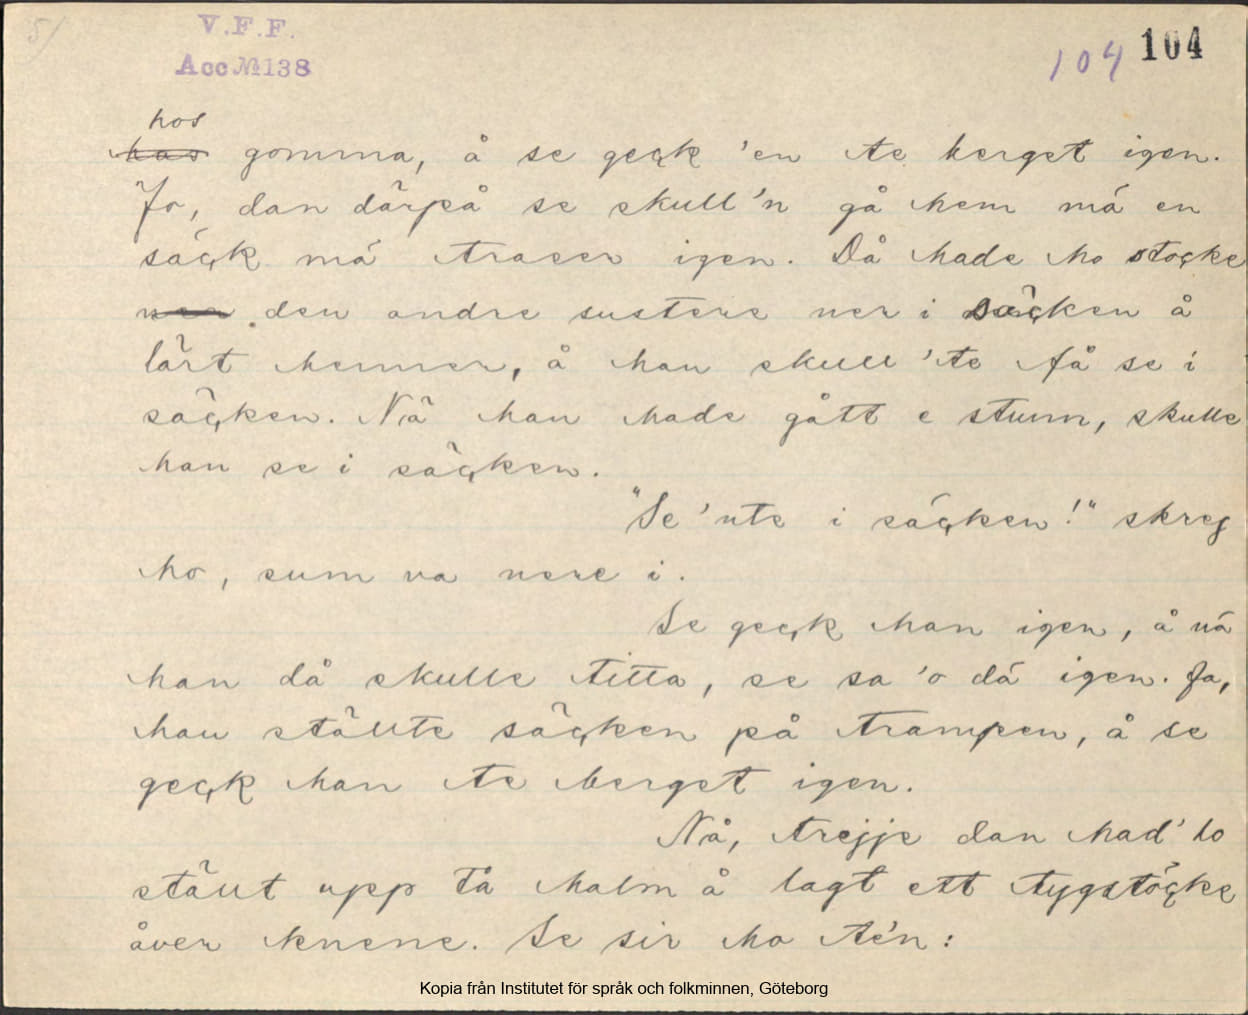 5)
V.F.F.
Acc№138
104 104
hos
has gomma, å se gęçk 'en te berget igen.
Jo, dan därpå se skull'n gå hem má en
säçk má traser igen. Då hade ho stoçke
ner den andre sustere ner i säçken å
lärt henner, å han skull 'te få se i
säçken. Nä han hade gått e stunn, skulle
han se i säçken.
"Se 'nte i säçken!" skreg
ho, sum va nere i.
Se geçk han igen, å nä
han då skulle titta, se sa 'o dá igen. Ja,
han ställte säçken på trampen, å se
geçk han te berget igen.
Nå, trejje dan had' ho
ställt upp tå halm å lagt ett tygstöçke
åver knene. Se sir ho te'n:
Kopia från Institutet för språk och folkminnen, Göteborg